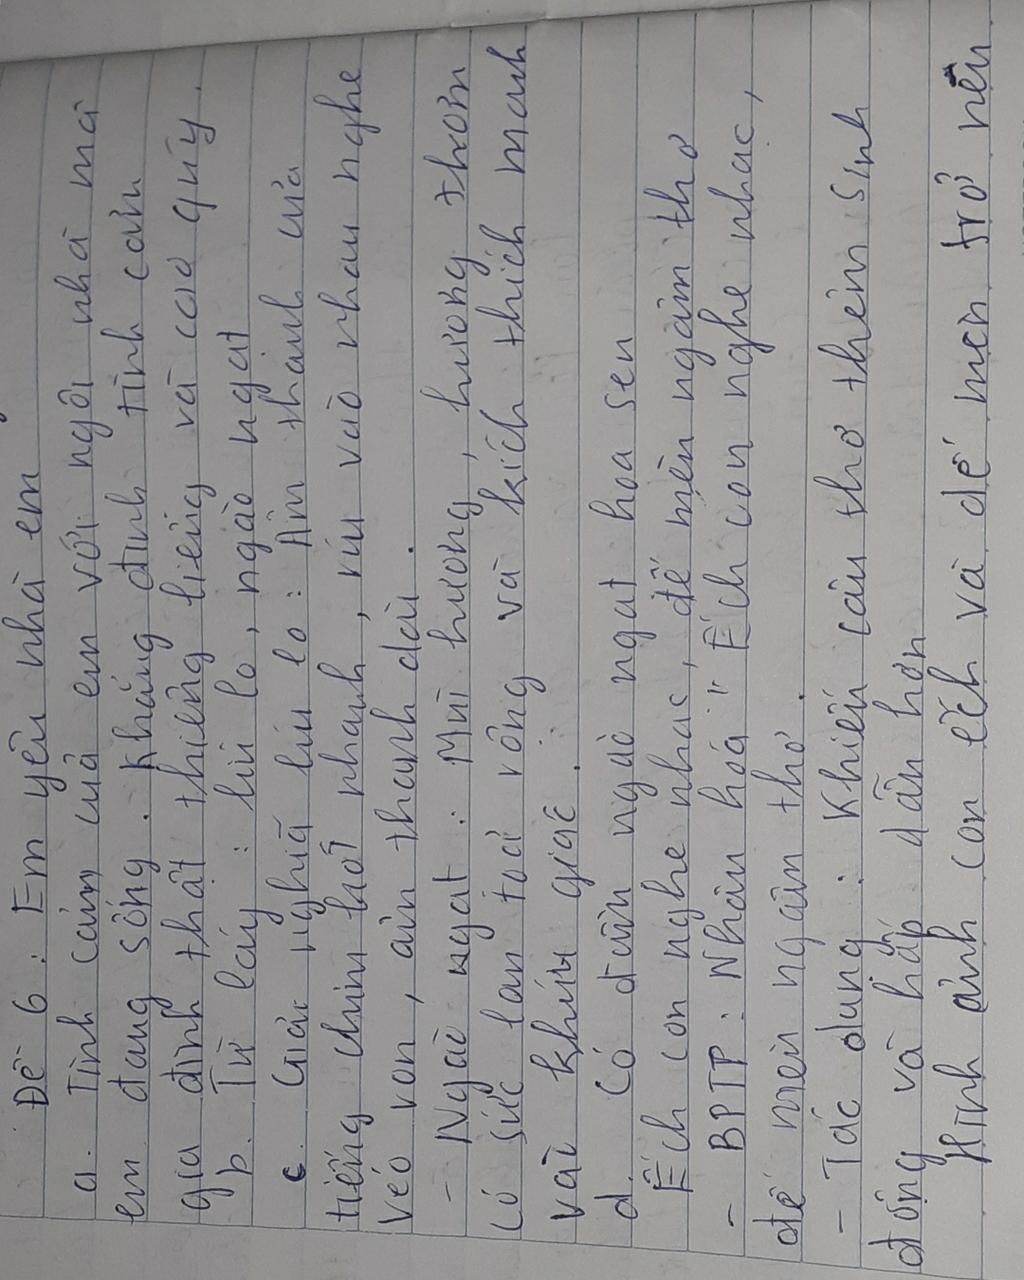 Đề 6: Em yêu nhà em
a. Tình cảm của em với ngôi nhà mà
em đang sống. Khẳng định tình cảm
gia đình thật thiêng liêng và cao quý.
b. Từ láy: líu lo, ngào ngạt
c. Giải nghĩa líu lo: Âm thanh của
tiếng chim hót nhanh, ríu vào nhau nghe
véo von, âm thanh dài.
- Ngào ngạt: Mùi hương, hương thơm
có sức lan toả rộng và kích thích mạnh
vào khứu giác.
d. Có đầm ngào ngạt hoa sen
Ếch con nghe nhạc, dế mèn ngâm thơ
- BPTP: Nhân hóa "Ếch con nghe nhạc,
dế mèn ngâm thơ.
- Tác dụng: Khiến câu thơ thêm sinh
động và hấp dẫn hơn
Hình ảnh con ếch và dế mèn trở nên